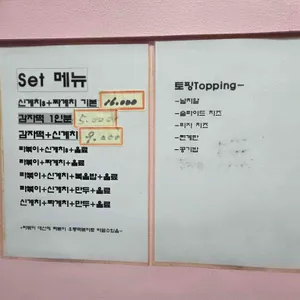 Set 메뉴
신계치s+짜계치 기본 16.000
감자떡 1인분 5.000
감자떡+신계치 9.000
떠볶이+신계치s+음료
떠볶이+신계치+음료
떠볶이+신계치+볶음밥+음료
떠볶이+신계치+만두+음료
신계치+짜계치+만두+음료
토핑Topping-
-날치알
-슬라이드 치즈
-피자 치즈
-반계란
-공기밥